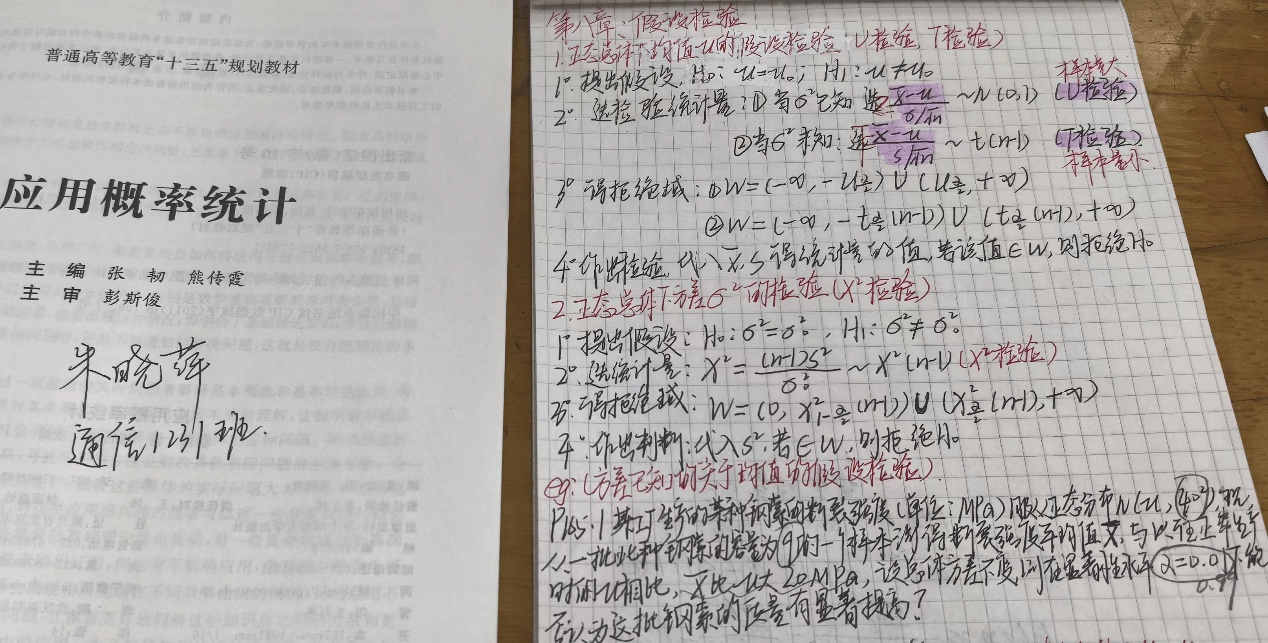 普通高等教育“十三五”规划教材
应用概率统计
主 编 张 韧 熊传霞
主 审 彭斯俊
朱晓萍
通信1231班.
第八章、假设检验
1.正态总体下均值u的假设检验：U检验，T检验)
1° 提出假设，H₀：u=u₀； H₁：u≠u₀
样本量大
2° 选检验统计量：① 当σ²已知 选 x̄-u/σ/√n ~N(0,1) (U检验)
②当σ²未知：选 x̄-u/s/√n ~ t(n-1) (T检验)
样本量小
3° 得拒绝域：①W=(-∞, -u_α/2) U (u_α/2, +∞)
②W=(-∞, -t_α/2(n-1)) U (t_α/2(n-1), +∞)
4° 作出检验，代入 x̄,s 得统计量的值，若该值∈W,则拒绝H₀
2.正态总体下方差σ²的检验(X²检验)
1° 提出假设：H₀：σ²=σ₀², H₁：σ²≠σ₀²
2° 选统计量：X²=(n-1)S²/σ₀² ~ X²(n-1) (X²检验)
3° 得拒绝域：W=(0, X²_1-α/2(n-1)) U (X²_α/2(n-1), +∞)
4° 作出判断：代入S²,若∈W,则拒绝H₀
eg：(方差已知的关于均值的假设检验).
P165.1 某工厂生产的某种钢索的断裂强度(单位：MPa)服从正态分布N(u, 40²),现
从一批此种钢索的容量为9的一个样本测得断裂强度平均值x̄,与以往正常生产
时的u相比，x̄比u大20MPa,设总体方差不变,问在显著性水平α=0.01下能
0.99
否认为这批钢索的质量有显著提高？